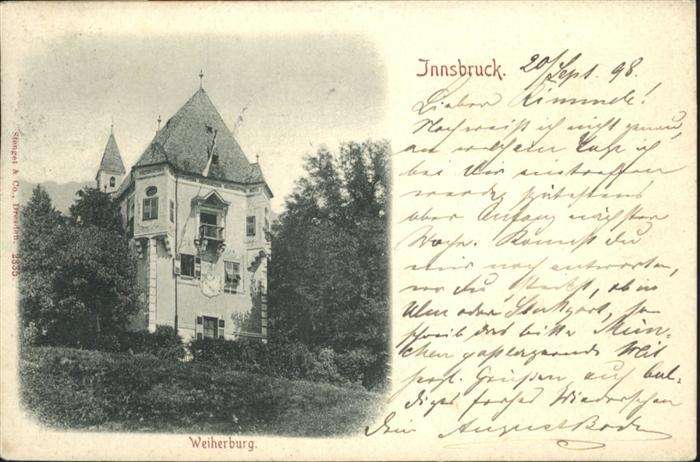 Innsbruck.
20/Sept. 98.
Lieber
Noch weiß ich nicht genau,
an welchem Tage ich
bei Dir eintreffen
werde, spätestens
aber Anfang nächster
Woche. Kannst du
mir noch antworten,
wo du steckst, ob in
Ulm oder Stuttgart, so
schreib das bitte Mün-
chen postlagernd
Grüßen auf bal-
diges frohes Wiedersehen
Dein August Bode
Stengel & Co., Dresden.
Weiherburg.